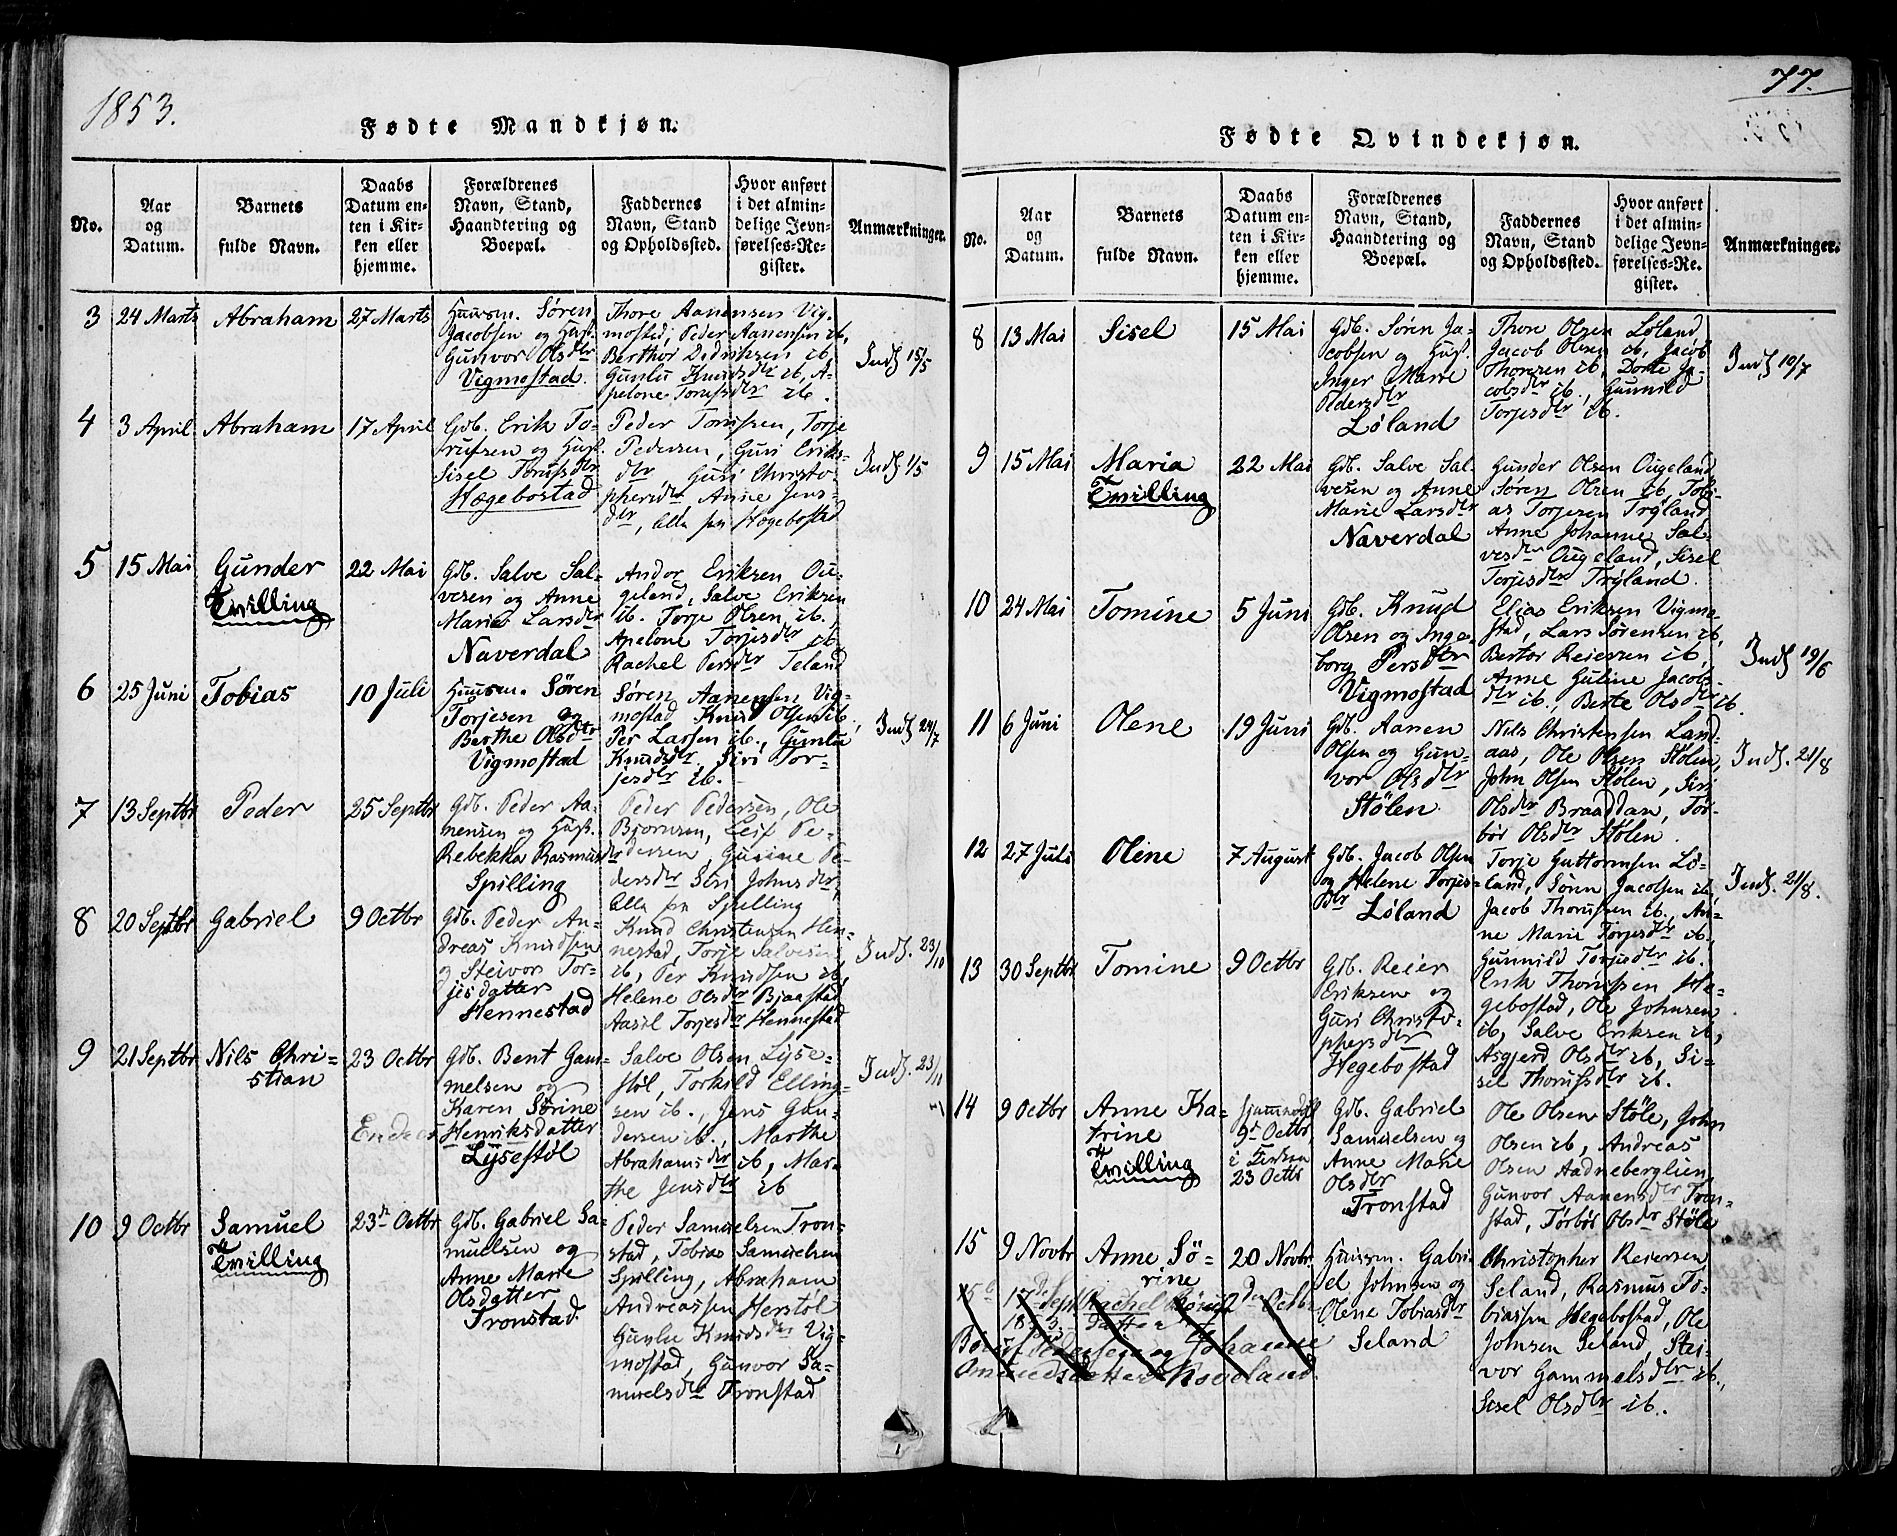 1853.
Fødte Mandkjøn.
No.
Aar
og
Datum.
Barnets
fulde Navn.
Daabs
Datum en-
ten i Kir-
ken eller
hjemme.
Forældrenes
Navn, Stand,
Haandtering og
Boepæl.
Faddernes
Navn, Stand
og Opholdssted.
Hvor anført
i det almin-
delige Jevn-
førelses-Re-
gister.
Anmærkninger.
3
24 Marts
Abraham
27 Marts
Huusm. Søren
Jacobsen og Hust.
Gunvor Olsdtr
Vigmostad.
Thore Aanensen Vig-
mostad, Peder Aanensen ib,
Berthor Didriksen ib,
Gunlu Knudsdtr ib, A-
pelone Torufsdtr ib.
Inds 15/5
4
3 April
Abraham
17 April
Gdb. Erik To-
rufsen og Hust.
Sisel Torufsdtr
Hægebostad
Peder Torufsen, Torje
Pedersen, Guri Eriks-
dtr Guri Christo-
phersdtr, Anne Jens-
dtr, Alle paa Hægebostad
Inds 1/5
5
15 Mai
Gunder
Tvilling
22 Mai
Gdb. Salve Sal-
vesen og Anne
Marie Larsdtr
Naverdal
Andor Eriksen Ou-
geland, Salve Eriksen
ib. Torje Olsen ib.,
Apelone Torjesdtr ib
Rachel Persdtr Teland
6
25 Juni
Tobias
10 Juli
Huusm. Søren
Torjesen og
Berthe Olsdtr
Vigmostad
Søren Aanensen Vig-
mostad Knud Olsen ib,
Per Larsen ib., Gunlu
Knudsdtr, Siri Tor-
jesdtr ib.
Inds 24/7
7
13 Septbr
Peder
25 Septbr
Gdb. Peder Aa-
nensen og Hust.
Rebekka Rasmusdtr
Spilling
Peder Pedersen, Ole
Bjornsen, Leif Pe-
dersen, Gurine Pe-
dersdtr Siri Johnsdtr,
Alle paa Spilling
8
20 Septbr
Gabriel
9 Octbr
Gdb. Peder An-
dreas Knudsen
og Steivor Tor-
jesdatter
Hennestad
Knud Christensen Hen-
nestad, Torje Salvesen
ib, Per Knudsen ib,
Helene Olsdtr Bjaastad
Aasil Torjesdtr Hennestad
Inds. 23/10
9
21 Septbr
Nils Chri-
stian
23 Octbr
Gdb. Bent Gam-
melsen og
Karen Sørine
Henriksdatter
Lysestøl
Salve Olsen Lyse-
støl, Torkild Elling-
sen ib., Jens Gun-
dersen ib., Marthe
Abrahamsdtr ib, Mar-
the Jensdtr ib
Inds. 23/11
10
9 Octbr
Samuel
Tvilling
23de Octbr
Gdb. Gabriel Sa-
muelsen og
Anne Marie
Olsdatter
Tronstad.
Peder Samuelsen Tron-
stad, Tobias Samuelsen
Spilling, Abraham
Andreassen Herstøl
Gunlu Knudsdtr Vig-
mostad, Gunvor Sa-
muelsdtr Tronstad
77.
Fødte Qvindekjøn.
No.
Aar
og
Datum.
Barnets
fulde Navn.
Daabs
Datum en-
ten i Kir-
ken eller
hjemme.
Forældrenes
Navn, Stand,
Haandtering og
Boepæl.
Faddernes
Navn, Stand
og Opholdssted.
Hvor anført
i det almin-
delige Jevn-
førelses-Re-
gister.
Anmærkninger.
8
13 Mai
Sisel
15 Mai
Gdb. Søren Ja-
cobsen og Hust.
Inger Marie
Pedersdtr
Løland
Thore Olsen Løland
Jacob Olsen ib, Jacob
Thoresen ib, Dorte Ja-
cobsdtr ib., Gunnild
Torjesdtr ib.
Inds 10/7
9
15 Mai
Maria
Tvilling
22 Mai
Gdb. Salve Sal-
vesen og Anne
Marie Larsdtr
Naverdal
Gunder Olsen Ougeland
Søren Olsen ib, Tobi-
as Torjesen Tryland
Anne Johanne Sal-
vesdtr Ougeland, Sisel
Torjesdtr Tryland.
10
24 Mai
Tomine
5 Juni
Gdb. Knud
Olsen og Inge-
borg Persdtr
Vigmostad
Elias Eriksen Vigmo-
stad, Lars Sørensen ib,
Bertor Reiersen ib,
Anne Guline Jacobs-
dtr ib., Berte Olsdtr ib.
Inds 19/6
11
6 Juni
Olene
19 Juni
Gdb. Aanen
Olsen og Gun-
vor Olsdtr
Stølen
Nils Christensen Land-
aas, Ole Olsen Stølen,
John Olsen Stølen, Siri
Olsdtr Braaddan, Tor-
bør Olsdtr Stølen.
Inds. 21/8
12
27 Juli
Oline
7 August
Gdb. Jacob Olsen
og Helene Torjes-
dtr
Løland
Torje Guttormsen Lø-
land, Sønn Jacobsen ib,
Jacob Thorussen ib., An-
ne Marie Torjesdtr ib,
Gunnild Torjesdtr ib.
Inds. 21/8.
13
30 Septbr
Tomine
9 Octbr
Gdb. Reier
Eriksen og
Guri Christo-
phersdtr
Hegebostad
Erik Thorussen He-
gebostad, Ole Johnsen
ib, Salve Eriksen ib,
Asgjerd Olsdtr ib, Si-
sel Thorussdtr ib.
14
9 Octbr
Anne Ka-
trine
Tvilling
hjemmedøbt
9de Octbr
i Kirken
23 Octbr
Gdb. Gabriel
Samuelsen og
Anne Marie
Olsdtr
Tronstad
Ole Olsen Støle, John
Olsen ib, Andreas
Olsen Aadneberglien
Gunvor Aanensdtr Tron-
stad, Tørbør Olsdtr Støle
15
9 Novbr
Anne Sø-
rine
20 Novbr.
Huusm. Gabri-
el Johnsen og
Olene Tobiasdtr
Seland
Christopher Reiersen
Seland, Rasmus To-
biassen Hegebostad, Ole
Johnsen Seland, Stei-
vor Gammelsdtr ib.,
Sisel Olsdtr ib.
15b
17de Sept
1853.
Rachel Børuf
datter
2den Octb.
Børuf Pedersen og Johanne
Omundsdatter Hovoland.